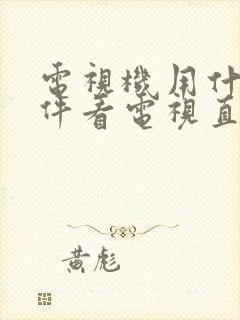 電視機用什
件看電視直
黃彪